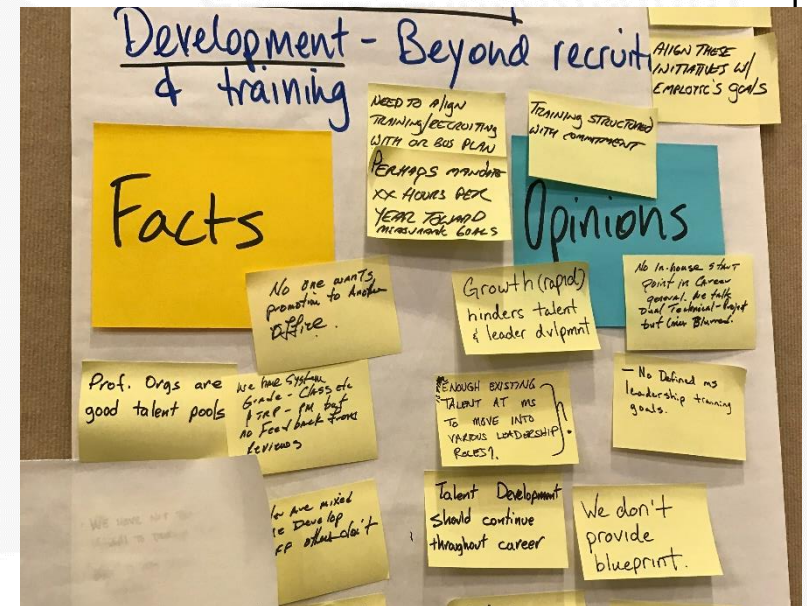 Development - Beyond recruiti
& training
ALIGN THESE
INITIATIVES W/
EMPLOYEE'S goALS
NEED TO Align
TRAINING/RECRUITING
WITH OR BUS PLAN
TRAINING STRUCTURED
WITH COMMITMENT
PERHAPS MANDATE
XX HOURS PER
YEAR TOWARD
GOALS
Facts
Opinions
No one wants
promotion to Another
office.
Growth (rapid)
hinders talent
& leader dvlpmnt
No In-house START
point in Career
general. We talk
Dual Technical-Project
but Lines Blurred.
Prof. Orgs are
good talent pools
We have System
Grade - Class etc
PM but
no Feedback from
Reviews
ENOUGH EXISTING
TALENT AT MS
TO MOVE INTO
VARIOUS LEADERSHIP
ROLES?
- No Defined ms
leadership training
goals.
are mixed
Develop
others don't
Talent Development
should continue
throughout career
We don't
provide
blueprint.